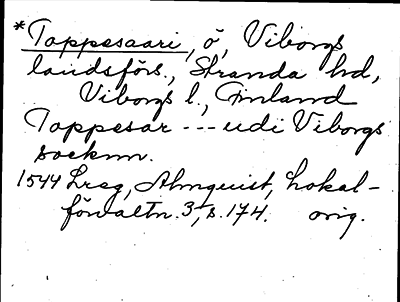 *Tappesaari, ö, Viborgs
landsförs., Stranda hd,
Viborgs l., Finland
Tappesar --- udi Viborgs
socknn.
1544 Lreg, Almquist, Lokal-
förvaltn. 3, s. 174. orig.